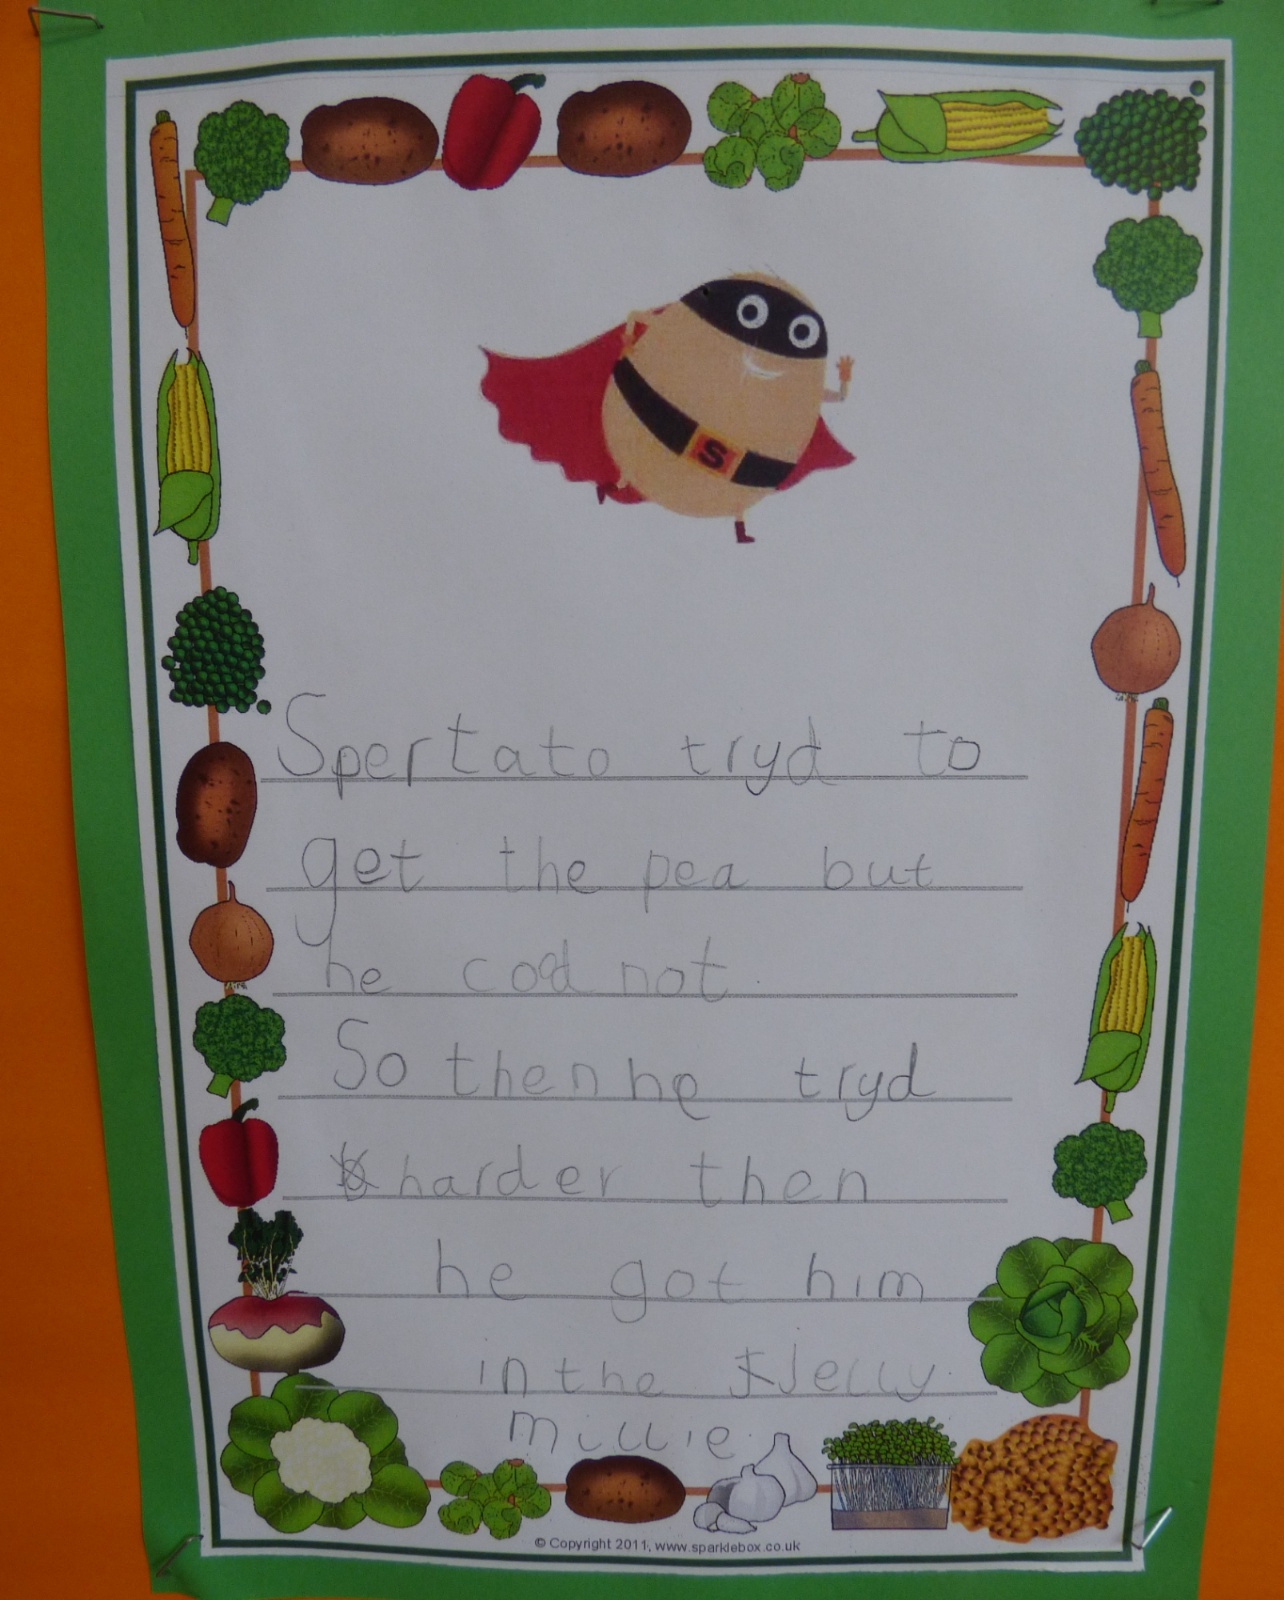 S
Spertato tryd to
get the pea but
he cod not.
So then he tryd
harder then
he got him
in the Jelly.
Millie.
© Copyright 2011, www.sparklebox.co.uk